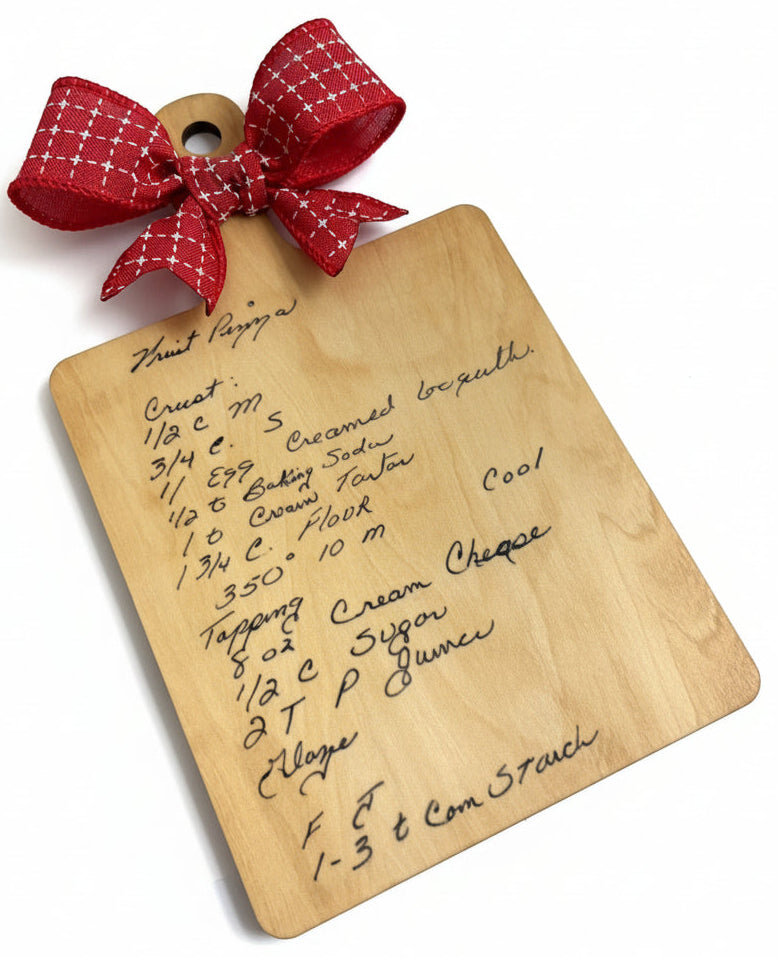 Fruit Pizza
Crust:
1/2 C M
3/4 C. S
1/ Egg Creamed together.
1/2 t Baking Soda
1 t Cream Tartar
1 3/4 C. Flour
350° 10 m Cool
Topping
8 oz Cream Cheese
1/2 C Sugar
2 T P Juice
Glaze
F J
1-3 t Corn Starch